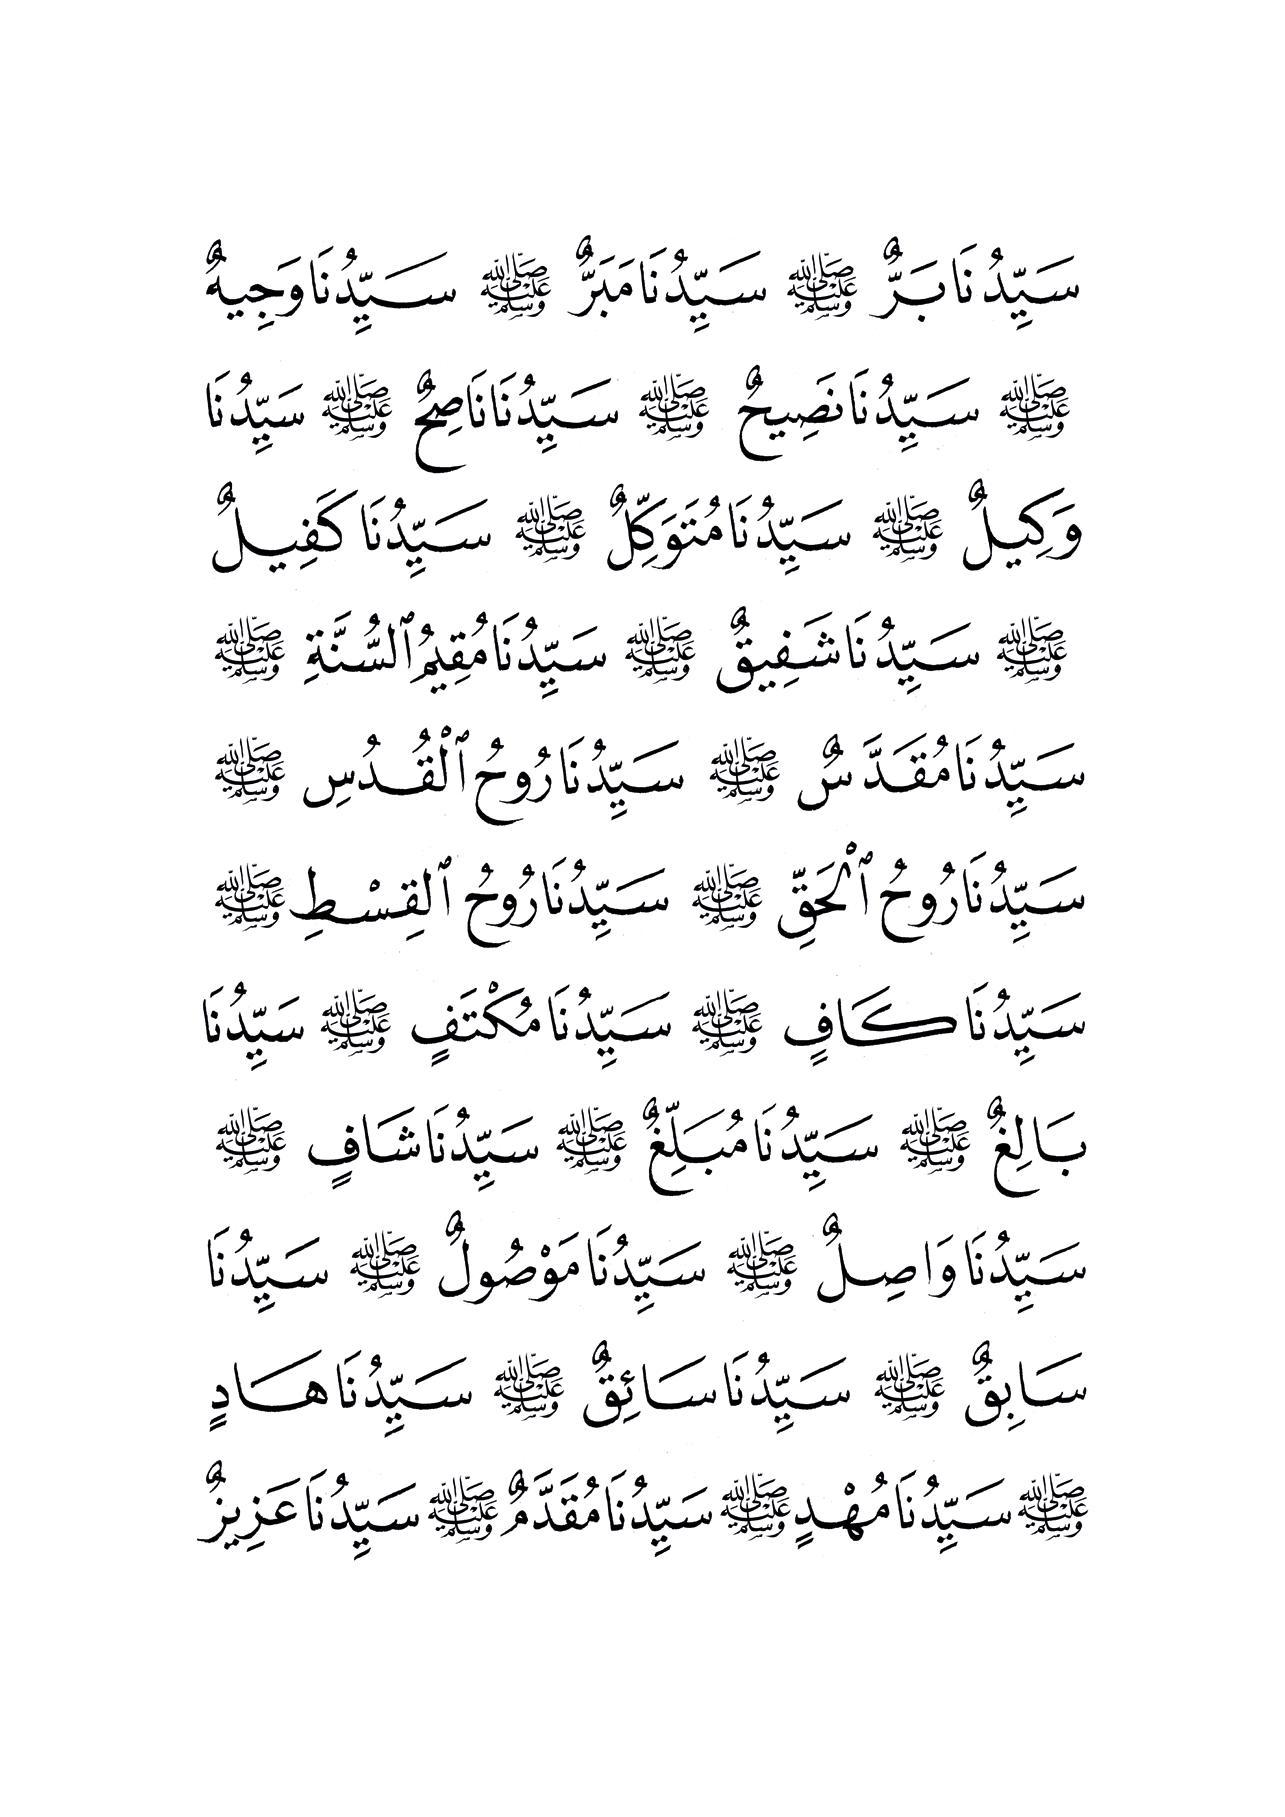 سَيِّدُنَا بَرٌّ ﷺ سَيِّدُنَا مَبَرٌّ ﷺ سَيِّدُنَا وَجِيهٌ
ﷺ سَيِّدُنَا نَصِيحٌ ﷺ سَيِّدُنَا نَاصِحٌ ﷺ سَيِّدُنَا
وَكِيلٌ ﷺ سَيِّدُنَا مُتَوَكِّلٌ ﷺ سَيِّدُنَا كَفِيلٌ
ﷺ سَيِّدُنَا شَفِيقٌ ﷺ سَيِّدُنَا مُقِيمُ ٱلسُّنَّةِ ﷺ
سَيِّدُنَا مُقَدَّسٌ ﷺ سَيِّدُنَا رُوحُ ٱلْقُدُسِ ﷺ
سَيِّدُنَا رُوحُ ٱلْحَقِّ ﷺ سَيِّدُنَا رُوحُ ٱلقِسْطِ ﷺ
سَيِّدُنَا كَافٍ ﷺ سَيِّدُنَا مُكْتَفٍ ﷺ سَيِّدُنَا
بَالِغٌ ﷺ سَيِّدُنَا مُبَلِّغٌ ﷺ سَيِّدُنَا شَافٍ ﷺ
سَيِّدُنَا وَاصِلٌ ﷺ سَيِّدُنَا مَوْصُولٌ ﷺ سَيِّدُنَا
سَابِقٌ ﷺ سَيِّدُنَا سَائِقٌ ﷺ سَيِّدُنَا هَادٍ
ﷺ سَيِّدُنَا مُهْدٍ ﷺ سَيِّدُنَا مُقَدَّمٌ ﷺ سَيِّدُنَا عَزِيزٌ